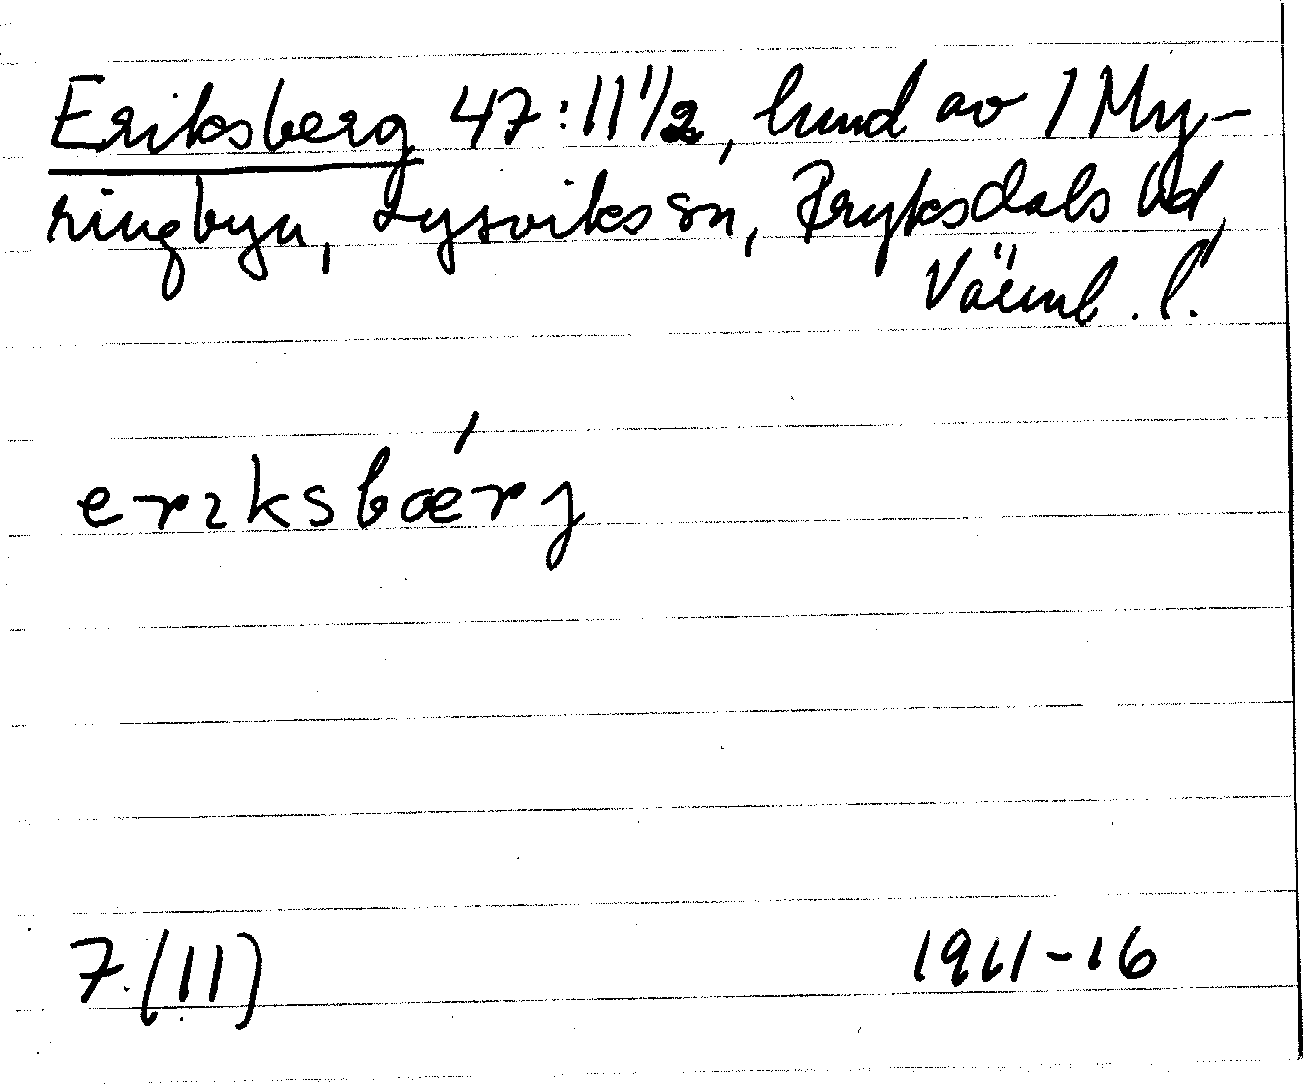 Eriksberg 47:11 1/2, hmd av 1 My-
ringbyn, Lysviks sn, Fryksdals hd,
Värml. l.
erɪksbærj
7.(11)
1911-16